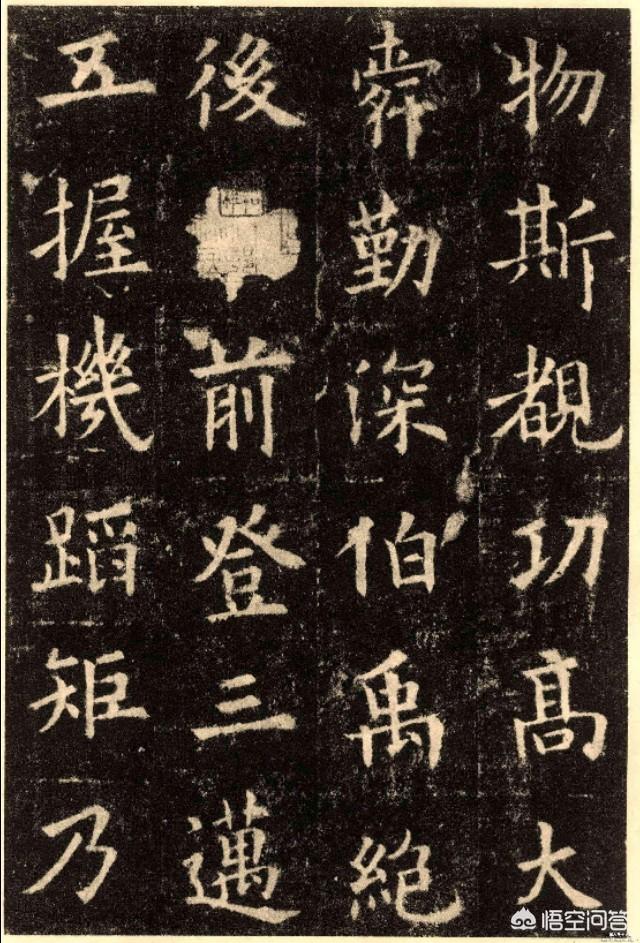 物斯覩功髙大
舜勤深伯禹絶
後前登三邁
五握機蹈矩乃
悟空问答